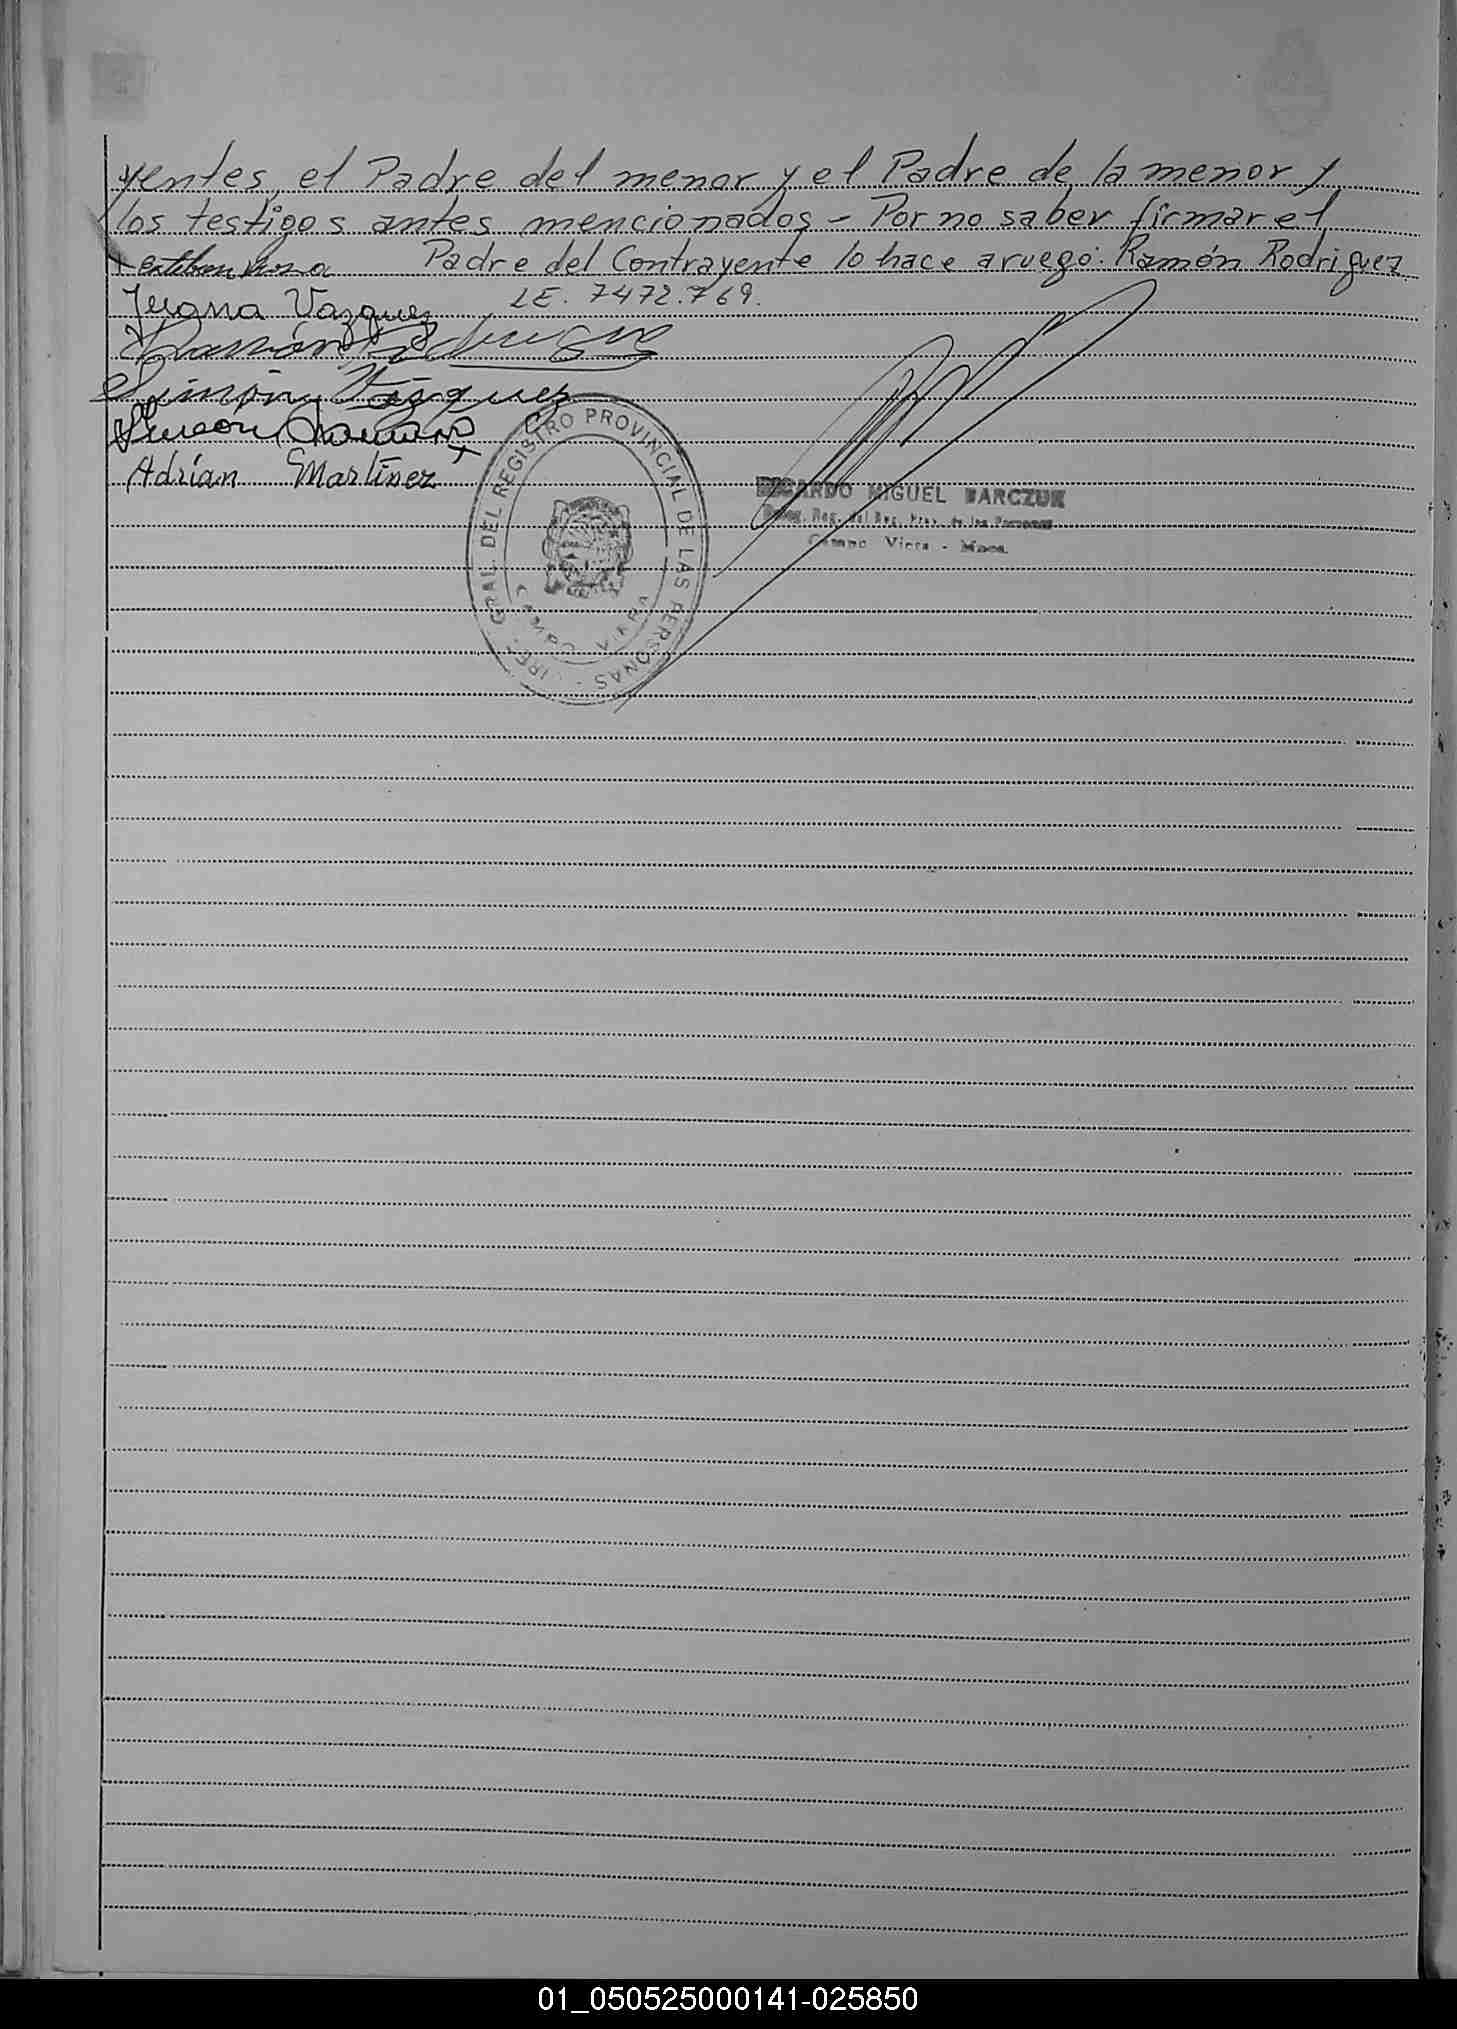 yentes, el Padre del menor y el Padre de la menor y
los testigos antes mencionados - Por no saber firmar el
Padre del Contrayente lo hace a ruego: Ramón Rodriguez
LE. 7472.769.
esteban
Juana Vazquez
Ramón Rodriguez
Simón Vázquez
Adrían Martínez
GRAL. DEL REGISTRO PROVINCIAL DE LAS PERSONAS
CAMPO VIERA
RICARDO MIGUEL BARCZUK
Deleg. Reg. del Reg. Prov. de las Personas
Campo Viera - Mnes.
01_050525000141-025850